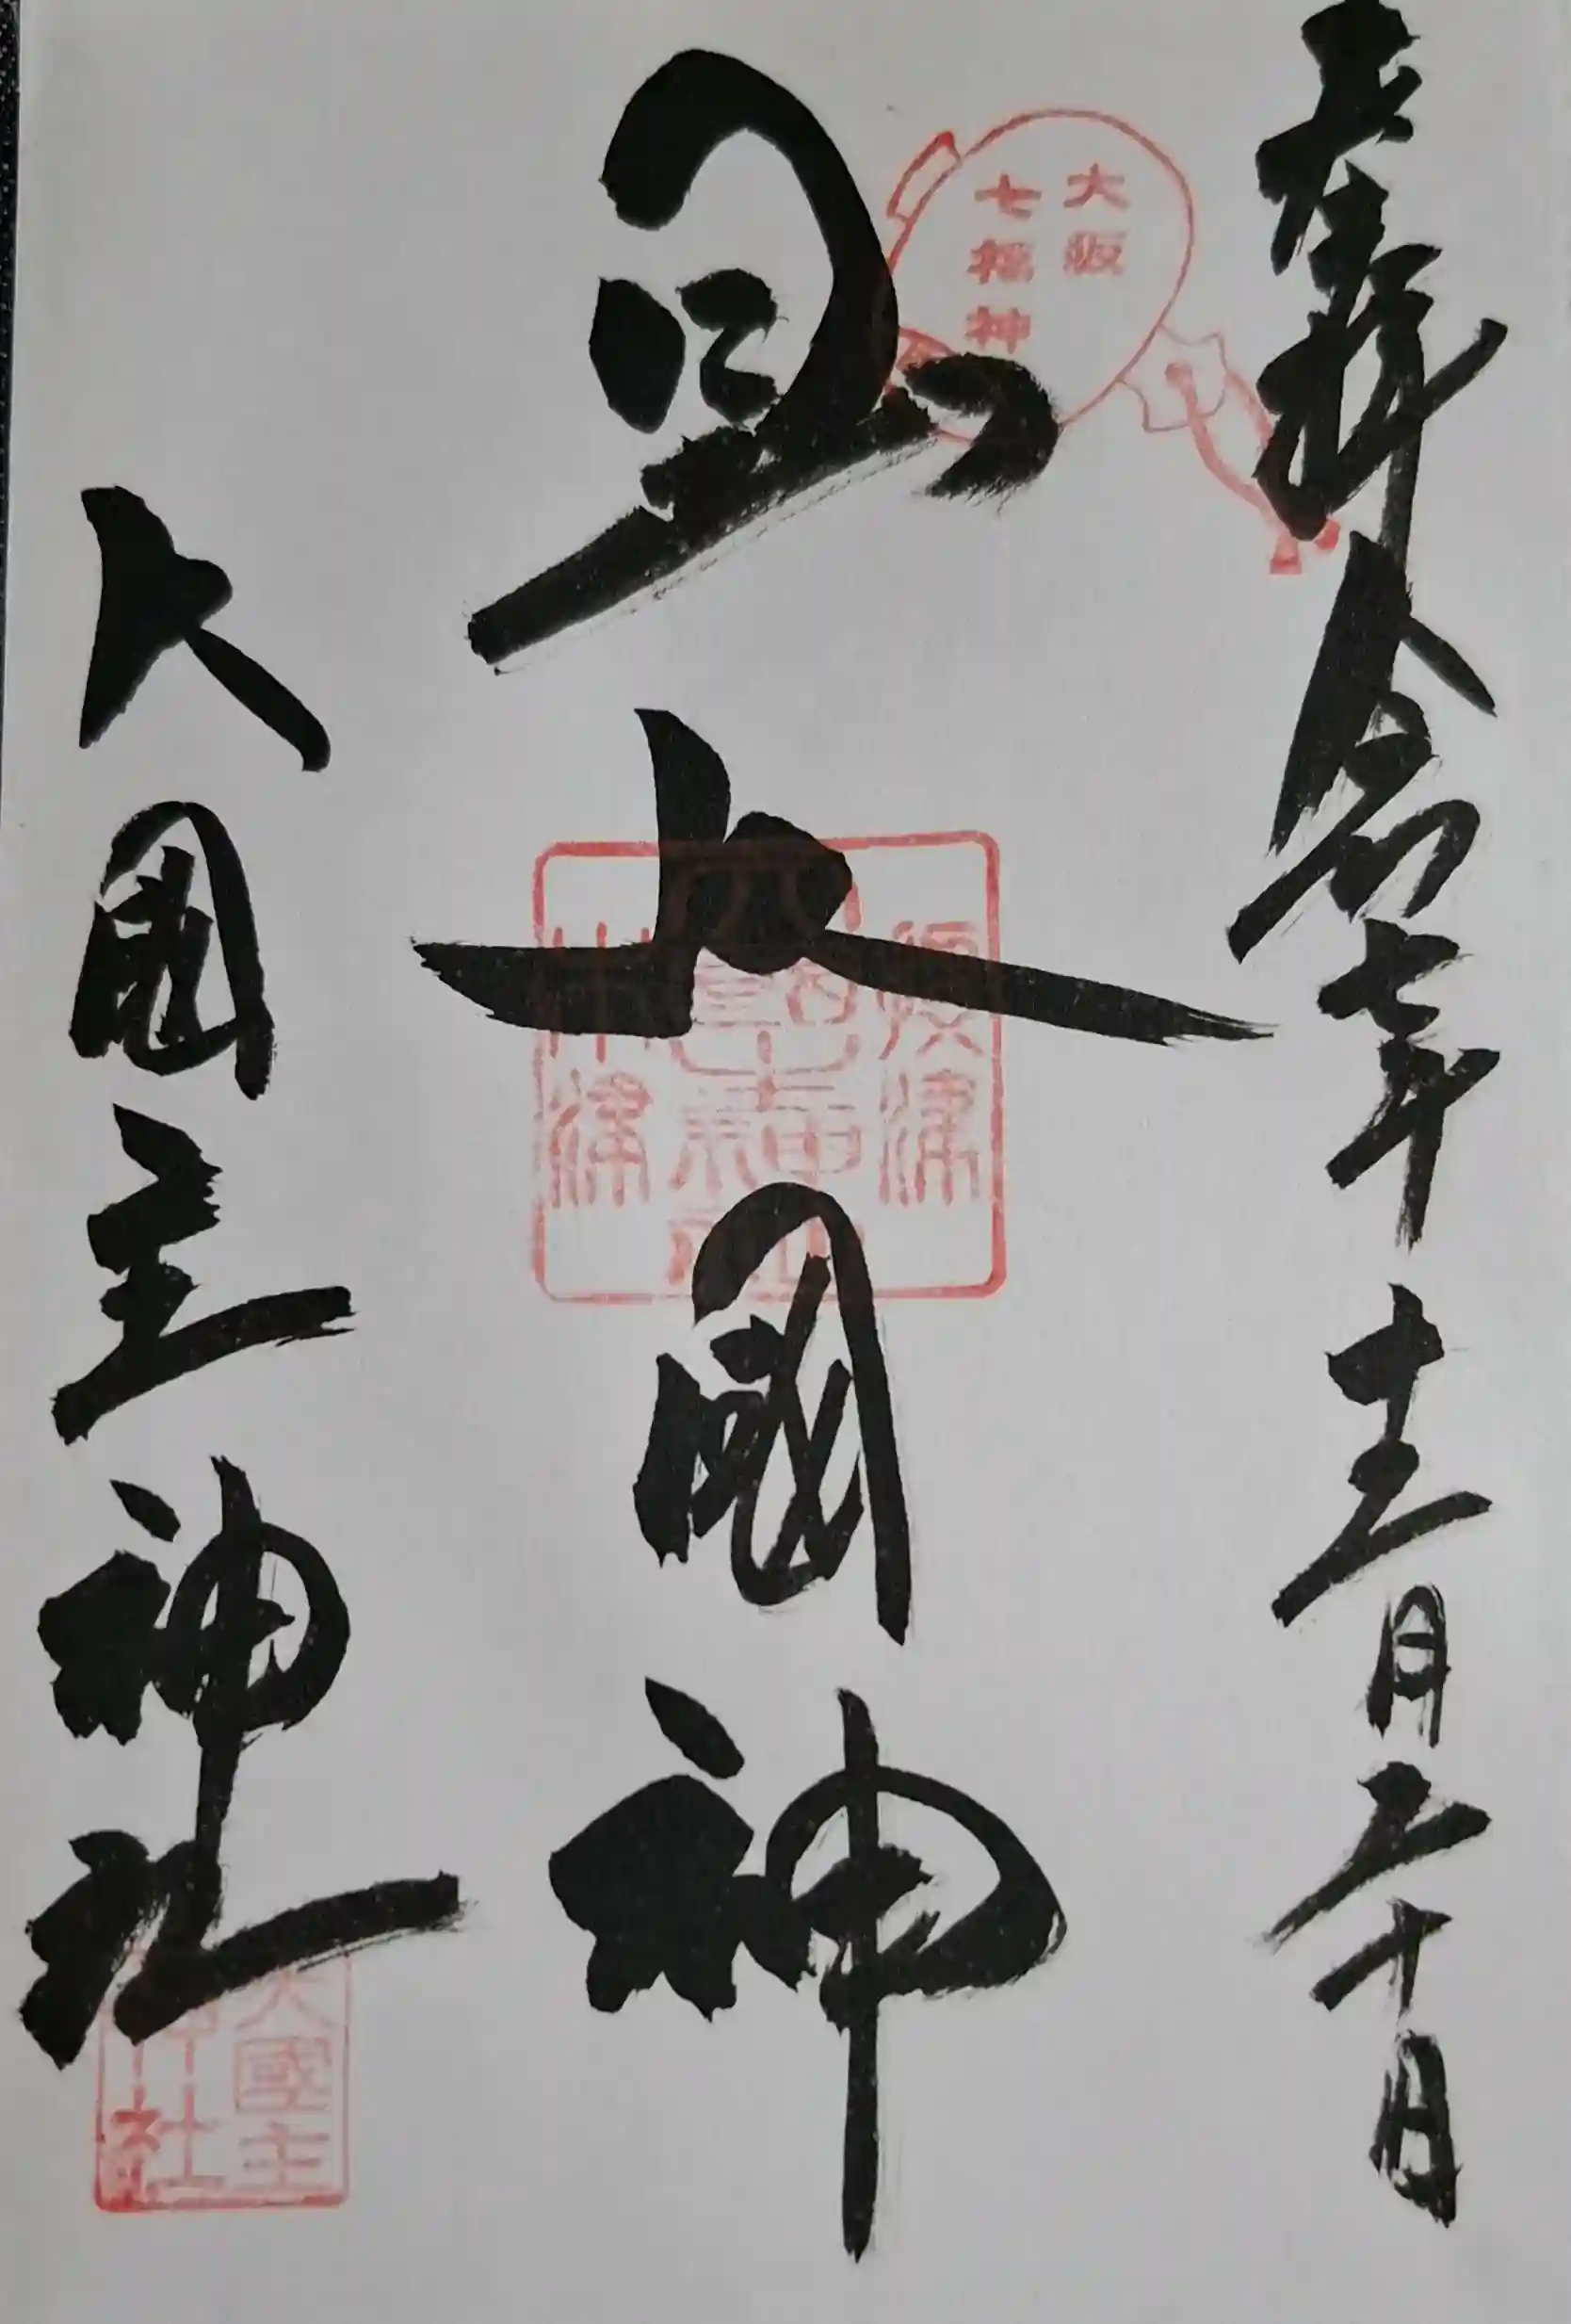 奉拝 令和七年 十二月二十日
大阪
七福神
日出大國神
大国主神社
大國主
神社